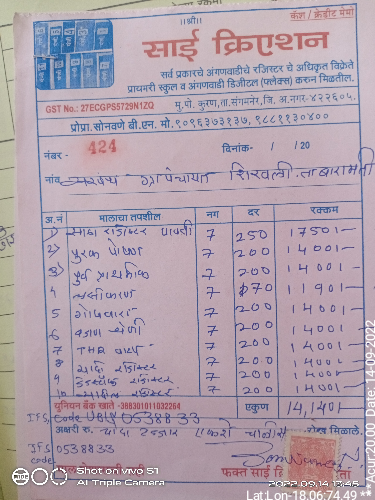 ॥श्री॥
कॅश / क्रेडीट मेमो
साई क्रिएशन
सर्व प्रकारचे अंगणवाडीचे रजिस्टर चे अधिकृत विक्रेते
प्राथमरी स्कुल व अंगणवाडी डिजीटल (फ्लेक्स) करुन मिळतील.
GST No.: 27ECGPS5729N1ZQ
मु.पो. कुरण, ता.संगमनेर, जि. अ.नगर-४२२६०५.
प्रोप्रा. सोनवणे बी.एन. मो.९०९६३७३१३७, ९८८११३०४००
नंबर - 424 दिनांक- / / 20
नांव ग्रापंचायत शिरवली ता बारामती
अ.नं मालाचा तपशील नग दर रक्कम
1) 7 250 1750/-
2) पुरक पोषण 7 200 1400/-
3) पुर्व प्राथमिक 7 200 1400/-
4 लसीकरण 7 170 1190/-
5 7 200 1400/-
6 वजन 7 200 1400/-
7 THR वाटप 7 200 1400/-
8 रजिस्टर 7 200 1400/-
9 रजिस्टर 7 200 1400/-
10 7 200 1400/-
युनियन बँक खाते -388301011032264 एकुण 14,140/-
IFS, Code
अक्षरी रु. चौदा हजार एकशे चाळीस रोख मिळाले.
IFS code 0538833
फक्त साई
Shot on vivo S1
AI Triple Camera
2022.09.14 13:45
Lat:Lon-18.06:74.49 ** Acu: 20.00, Date: 14-09-2022